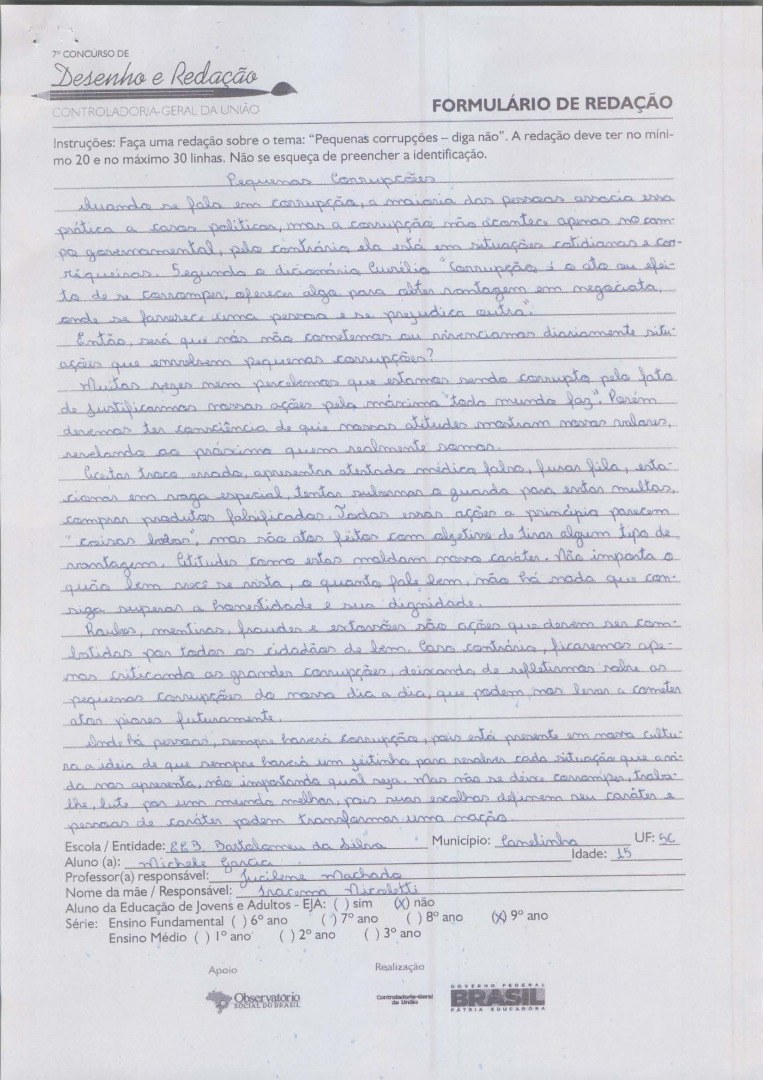 7º CONCURSO DE
Desenho e Redação
CONTROLADORIA-GERAL DA UNIÃO
FORMULÁRIO DE REDAÇÃO
Instruções: Faça uma redação sobre o tema: "Pequenas corrupções – diga não". A redação deve ter no míni-
mo 20 e no máximo 30 linhas. Não se esqueça de preencher a identificação.
Pequenas Corrupções
Quando se fala em corrupção, a maioria das pessoas associa essa
prática a casos políticos, mas a corrupção não acontece apenas no cam-
po governamental, pelo contrário ela está em situações cotidianas e cor-
riqueiras. Segundo o dicionário Aurélio "Corrupção é o ato ou efei-
to de se corromper, oferecer algo para obter vantagem em negociata,
onde se favorece uma pessoa e se prejudica outra".
Então, será que nós não cometemos ou vivenciamos diariamente situ-
ações que envolvem pequenas corrupções?
Muitas vezes nem percebemos que estamos sendo corrupto pelo fato
de justificarmos nossas ações pela máxima "todo mundo faz". Porém
devemos ter consciência de que nossas atitudes mostram nossos valores,
revelando ao próximo quem realmente somos.
Aceitar troco errado, apresentar atestado médico falso, furar fila, esta-
cionar em vaga especial, tentar subornar o guarda para evitar multas,
comprar produtos falsificados. Todas essas ações a princípio parecem
"coisas bobas", mas são atos feitos com objetivo de tirar algum tipo de
vantagem. Atitudes como estas moldam nosso caráter. Não importa o
quão bem você se vista, o quanto fale bem, não há nada que con-
siga superar a honestidade e sua dignidade.
Roubos, mentiras, fraudes e extorsões são ações que devem ser com-
batidas por todos os cidadãos de bem. Caso contrário, ficaremos ape-
nas criticando as grandes corrupções, deixando de refletirmos sobre as
pequenas corrupções do nosso dia a dia, que podem nos levar a cometer
atos piores futuramente.
Onde há pessoas, sempre haverá corrupção, pois está presente em nossa cultu-
ra a ideia de que sempre haverá um jeitinho para resolver cada situação que a vi-
da nos apresenta, não importando qual seja. Mas não se deixe corromper, traba-
lhe, lute por um mundo melhor, pois suas escolhas definem seu caráter e
pessoas de caráter podem transformar uma nação
Escola / Entidade: EEB Bartolomeu da Silva Município: Canelinha UF: SC
Aluno (a): Michele Garcia Idade: 15
Professor(a) responsável: Jucilene Machado
Nome da mãe / Responsável: Iracema Nicoletti
Aluno da Educação de Jovens e Adultos - EJA: ( ) sim (X) não
Série: Ensino Fundamental ( ) 6º ano ( ) 7º ano ( ) 8º ano (X) 9º ano
Ensino Médio ( ) 1º ano ( ) 2º ano ( ) 3º ano
Apoio
Realização
Observatório
SOCIAL DO BRASIL
Controladoria-Geral
da União
GOVERNO FEDERAL
BRASIL
PÁTRIA EDUCADORA